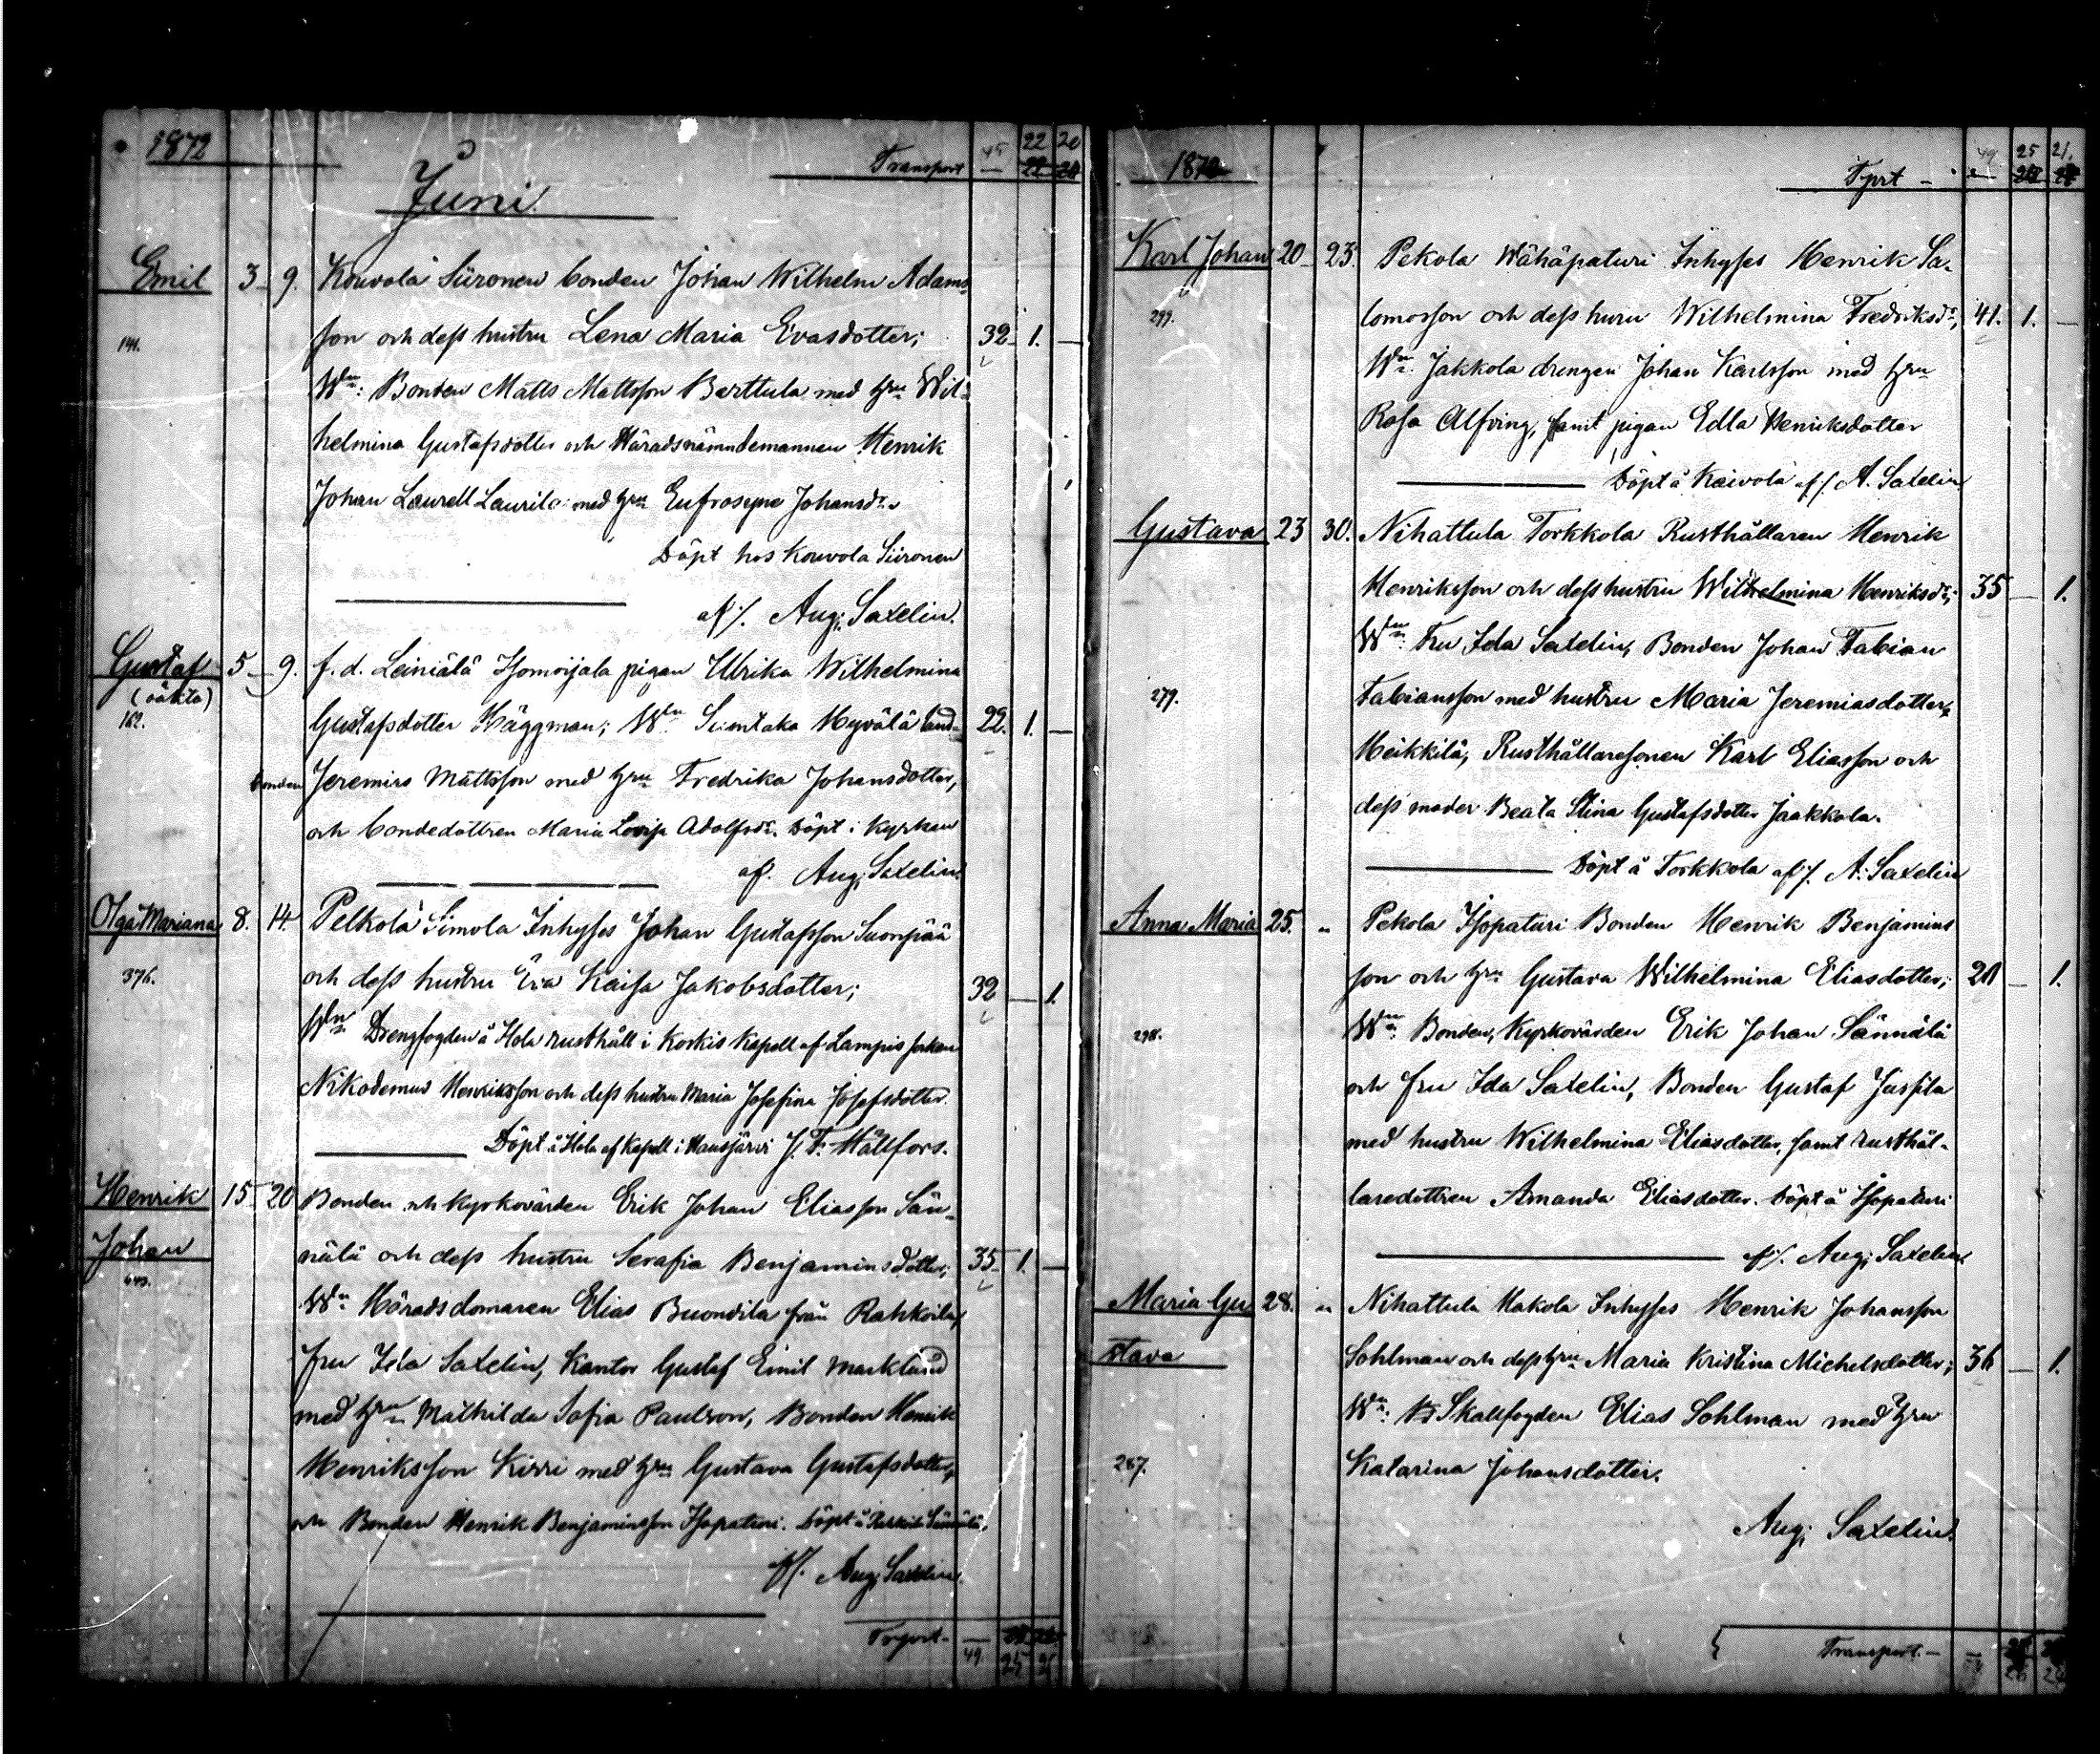 1872
Juni
Transport 45 22 20
Emil 3 9. Kouvola Siironen bonden Johan Wilhelm Adams-
son och dess hustru Lena Maria Evasdotter; 32 1. —
141.
Wn: Bonden Matts Mattsson Barttula med hru Wil-
helmina Gustafsdotter och Häradsnämndemannen Henrik
Johan Laurell Laurila med hru Eufrosyne Johansdr.
Döpt hos Kouvola Siironen
af Aug. Saxelin.
Gustaf 5 9. f.d. Leiniälä Isomöijala pigan Ulrika Wilhelmina
(oäkta)
162.
Gustafsdotter Häggman; Wn Suontaka Hyvälä land- 22. 1. —
bonden Jeremias Mattsson med hru Fredrika Johansdotter,
och bondedottren Maria Lovisa Adolfsdr. Döpt i Kyrkan
af. Aug. Saxelin.
Olga Mariana 8. 14. Pelkola Simola Inhyses Johan Gustafsson Suonpää
376.
och dess hustru Eva Kaisa Jakobsdotter; 32 — 1.
Wn Drengfogden å Hola rusthåll i Koskis Kapell af Lampis socken
Nikodemus Henriksson och dess hustru Maria Josefina Josefsdotter.
Döpt å Hola af Kapell. i Hausjärvi J. F. Hällfors.
Henrik 15 20 Bonden och Kyrkovärden Erik Johan Eliasson Sän-
Johan
nälä och dess hustru Serafia Benjaminsdotter; 35 1. —
Wn Häradsdomaren Elias Buondila från Rahkoila,
fru Ida Saxelin, Kantor Gustaf Emil Markland
med hru Mathilda Sofia Paulson, Bonden Henrik
Henriksson Kirri med hru Gustava Gustafsdotter,
och Bonden Henrik Benjaminsson Isopaturi. Döpt å Sännälä.
af Aug. Saxelin.
Trsprt. — 49 25 21
1872
Tprt — 49 25 21.
Karl Johan 20 23. Pekola Wähäpaturi Inhyses Henrik Sa-
299.
lomosson och dess huru Wilhelmina Fredriksdr, 41. 1. —
Wn. Jakkola drengen Johan Karlsson med hru
Rosa Alfving, samt pigan Edla Henriksdotter
Döpt å Kaivola af A. Saxelin
Gustava 23 30. Nihattula Torkkola Rusthållaren Henrik
Henriksson och dess hustru Wilhelmina Henriksdr; 35 — 1.
Wn: Fru Ida Saxelin, Bonden Johan Fabian
279.
Fabiansson med hustru Maria Jeremiasdotter
Heikkilä, Rusthållaresonen Karl Eliasson och
dess moder Beata Stina Gustafsdotter Jaakkola.
Döpt å Torkkola af A. Saxelin
Anna Maria 25. " Pekola Isopaturi Bonden Henrik Benjamins
son och hru Gustava Wilhelmina Eliasdotter; 20 — 1.
298.
Wn: Bonden, Kyrkovärden Erik Johan Sännälä
och fru Ida Saxelin, Bonden Gustaf Jussila
med hustru Wilhelmina Eliasdotter, samt rusthål-
laredottren Amanda Eliasdotter. Döpt å Isopaturi
af Aug. Saxelin.
Maria Gu 28. " Nihattula Makola Inhyses Henrik Johansson
stava
Sohlman och dess hru Maria Kristina Michelsdotter; 36 — 1.
Wn: Skallfogden Elias Sohlman med hru
267.
Katarina Johansdotter.
Aug. Saxelin.
Transport. —